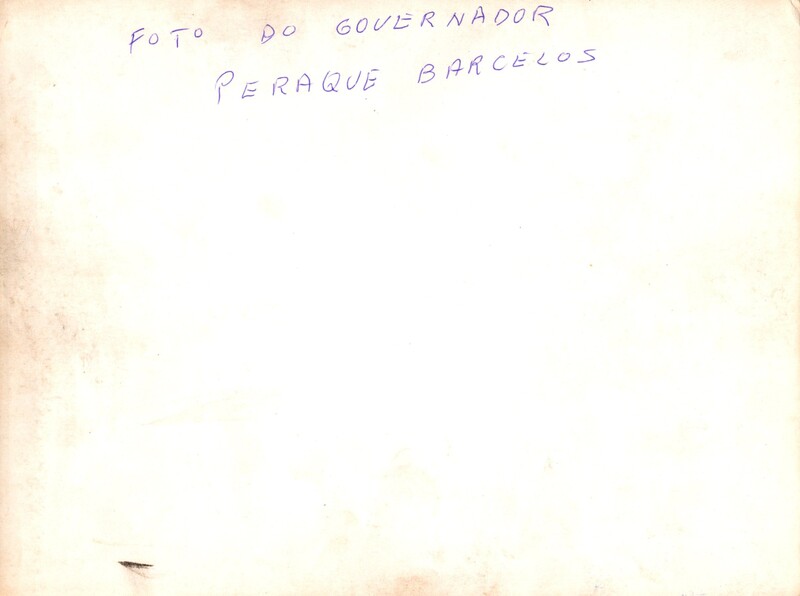 FOTO DO GOVERNADOR
PERAQUE BARCELOS